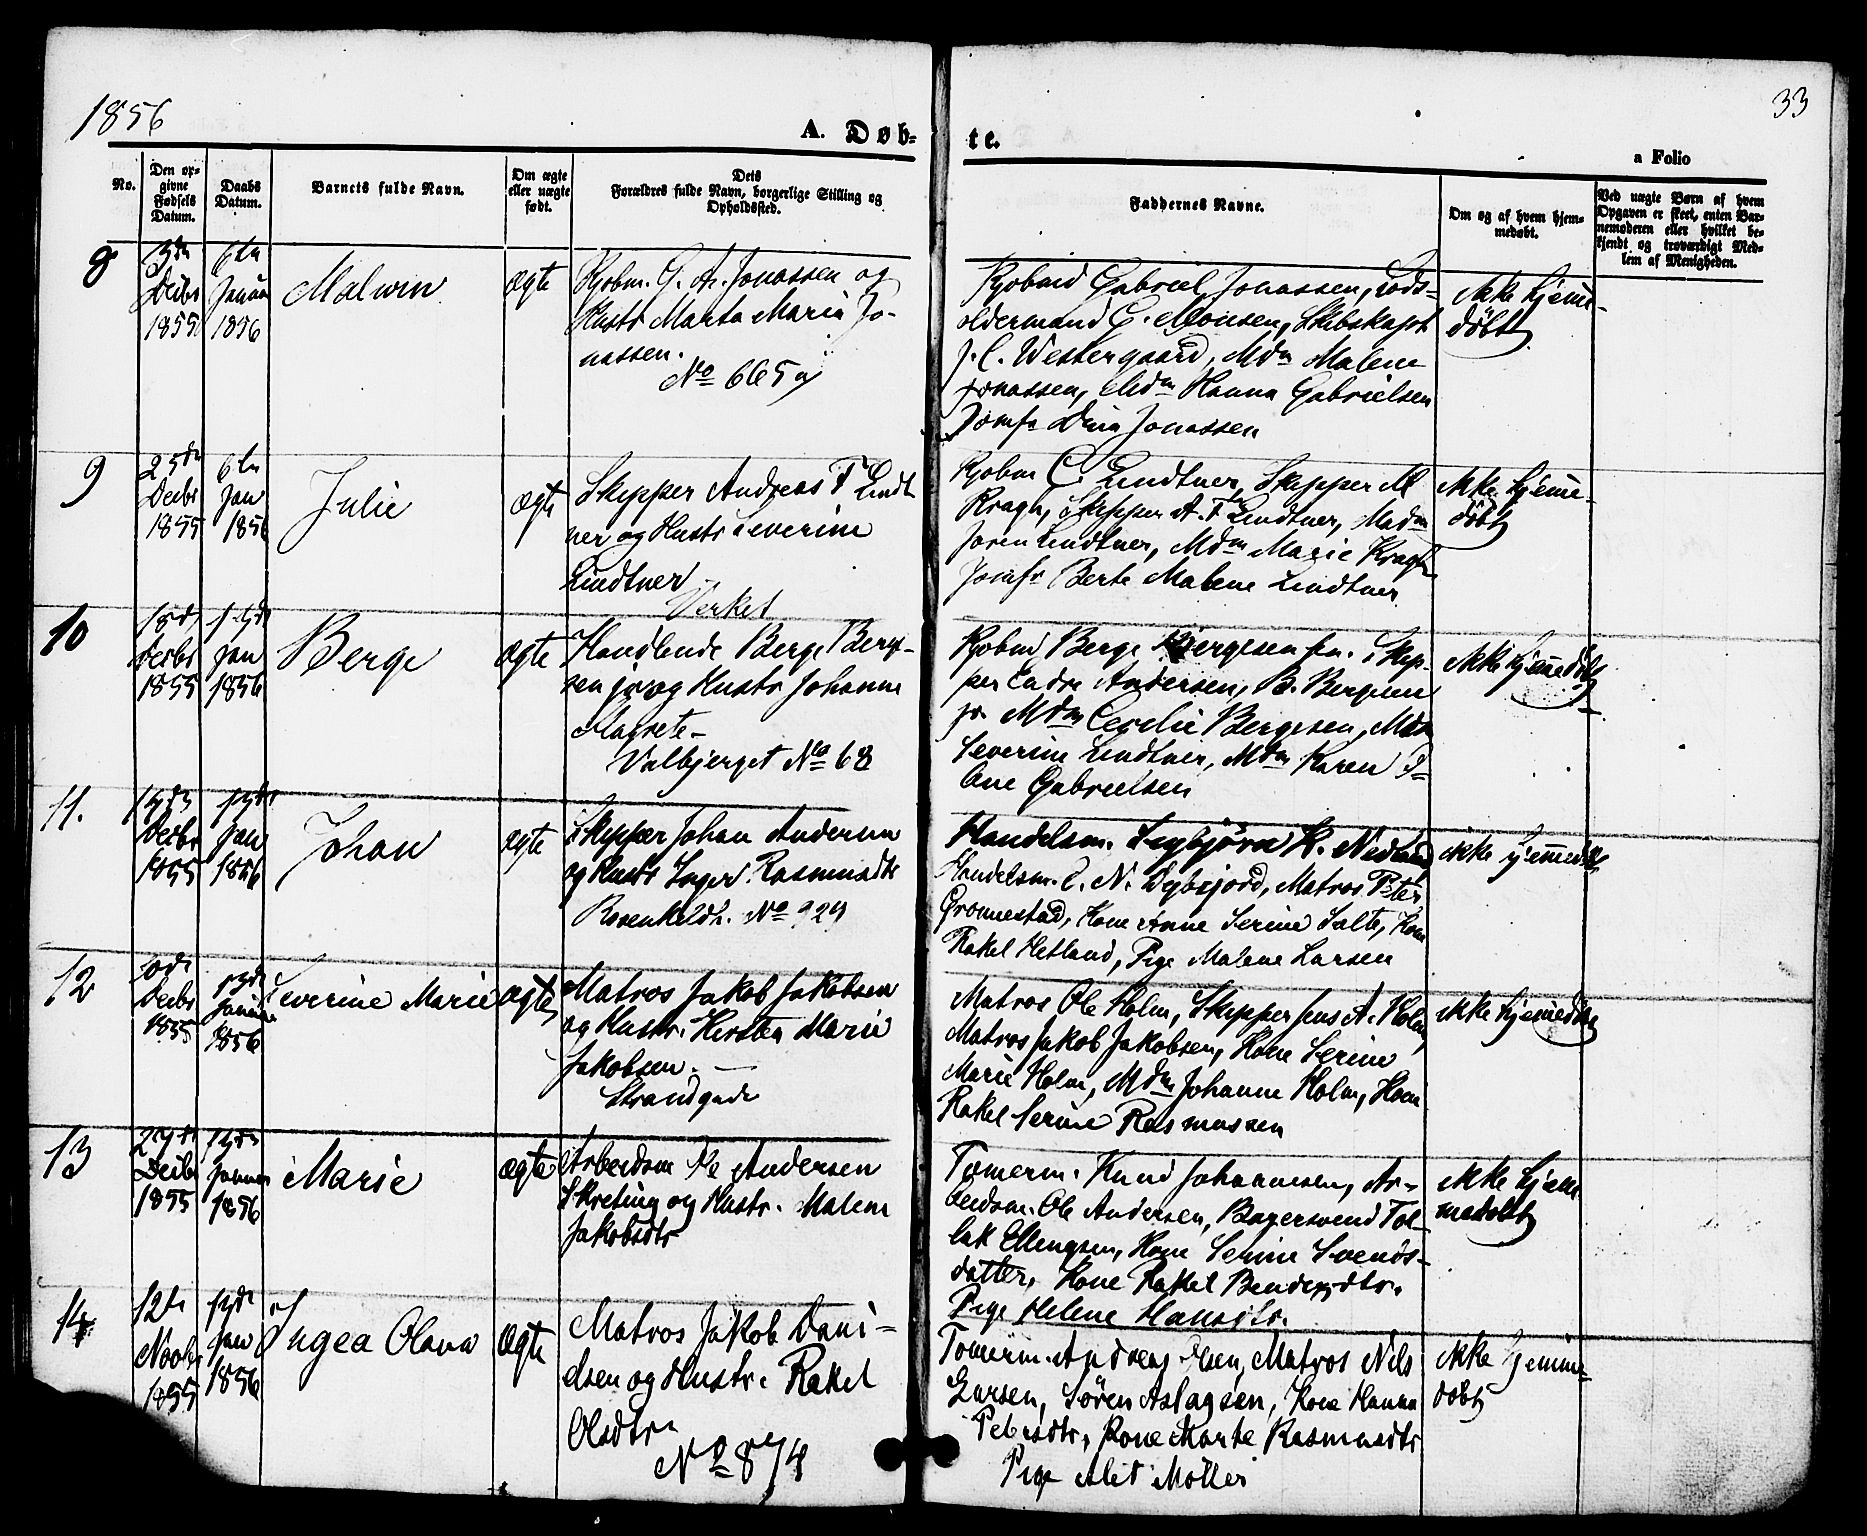 1856
33
A. Døb-
te.
a Folio
No.
Den op-
givne
Fødsels
Datum.
Daabs
Datum.
Barnets fulde Navn.
Om ægte
eller uægte
født.
Dets
Forældres fulde Navn, borgerlige Stilling og
Opholdssted.
Faddernes Navne.
Om og af hvem hjem-
medøbt.
Ved uægte Børn af hvem
Opgaven er skeet, enten Bar-
nemoderen eller hvilket be-
kjendt og troværdigt Med-
lem af Menigheden.
8
Decbr
1855
6te
Januar
1856
Malwin
ægte
Kjøbm. G. A. Jonassen og
Hustr Marta Maria Jo-
nassen.
No 665 a
Gabriel Jonassen, Lods-
oldermand G. Monsen, Skibskapt
J. C. Westergaard, Mdm Malene
Jonassen, Mdm Hanna Gabrielsen
Jomfr Dina Jonassen
ikke hjemme-
døbt
9
25de
Decbr
1855
6te
Jan
1856
Julie
ægte
Skipper Andreas F Lindt
ner og Hustr Severine
Lindtner
Verket
Kjøbm C. Lindtner, Skipper M
Kragh, Skipper A. F Lindtner, Madm
Lindtner, Mdm Marie Kragh
Jomfr Berte Malene Lindtner
ikke hjemme-
døbt
10
18de
Decbr
1855
13de
Jan
1856
Berge
ægte
Handlende Berge Berge-
sen jr og Hustr Johanne
Margrete -
Valbjerget No 68
Kjøbm Berge Bergesen sen. Skip-
per Andersen, B. Bergesen
jr Mdm Cecilie Bergesen, Mdm
Severine Lindtner, Mdm Karen E-
lene Gabrielsen
ikke hjemmedøbt
11.
Decbr
1855
13de
Jan
1856
Johan
ægte
Skipper Johan Andersen
og Hustr Inger Rasmusdtr
Rosenkildh. No 929
Handelsm. Sigbjørn K. Nedland
Handelsm. C. N. Dybfjord, Matros Peter
Gronnestad, Kone Anne Serine Salte, Kone
Rakel Hetland, Pige Malene Larsen
ikke hjemmedøbt
12
Decbr
1855
13de
Januar
1856
Severine Marie
ægte
Matros Jakob Jakobsen
og Hustr. Kirsten Marie
Jakobsen. —
Strandgade
Matros Ole Holm, Skipper Jens A. Holm,
Matros Jakob Jakobsen, Kone Serine
Marie Holm, Mdm Johanne Holm, Kone
Rakel Serine Rasmussen
ikke hjemmedøbt
13
Decbr
1855
13de
Januar
1856
Marie
ægte
Arbeidsm Ole Andersen
Skreting og Hustr. Malene
Jakobsdtr
Tømerm. Knud Johannesen, Ar-
beidsm. Ole Andersen, Bagersvend Tol-
lak Ellingsen, Kone Serine Svends-
datter, Kone Rakel Bendixdtr.
Pige Helene Hansdtr.
ikke hjem
medøbt
14
12te
Novbr
1855
13de
Jan
1856
Ingea Olava
ægte
Matros Jakob Dani-
elsen og Hustr. Rakel
Olsdtr
No 874
Tømerm. Andreas Olsen, Matros Nils
Larsen, Søren Aslagsen, Kone Hanna
Petersdtr, Kone Marte Rasmusdtr
Pige Alet Møller
ikke hjemme-
døbt